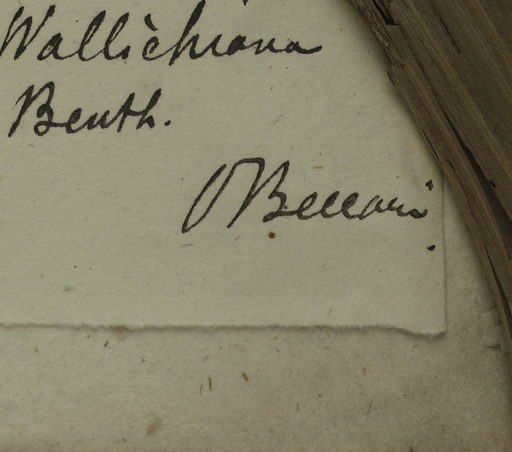 Wallichiana
Benth.
O Beccari